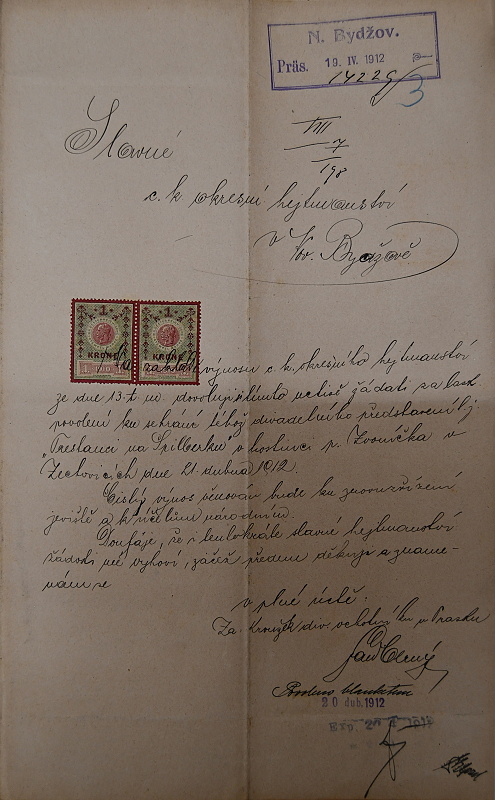 N. Bydžov.
Präs. 19. IV. 1912
14229/3
VIII
7
198
Slavné
c. k. okresní hejtmanství
v Nov. Bydžově
1 KRONE
1 KRONE
Na základě výnosu c. k. okresního hejtmanství
ze dne 13. t. m. dovoluji si tímto uctivě žádati za lask.
povolení ku sehrání téhož divadelního představení tj.
"Trestanci na Špilberku" v hostinci p. Zvoníčka v
dne 21. dubna 1912.
Čistý výnos věnován bude ku znovuzřízení
jeviště a k účelům národním.
Doufaje, že i tentokráte slavné hejtmanství
žádosti mé vyhoví, začež předem děkuji a zname-
nám se
v plné úctě:
Za Kroužek div. ochotníků v
Jan Černý
20 dub. 1912
Exp.